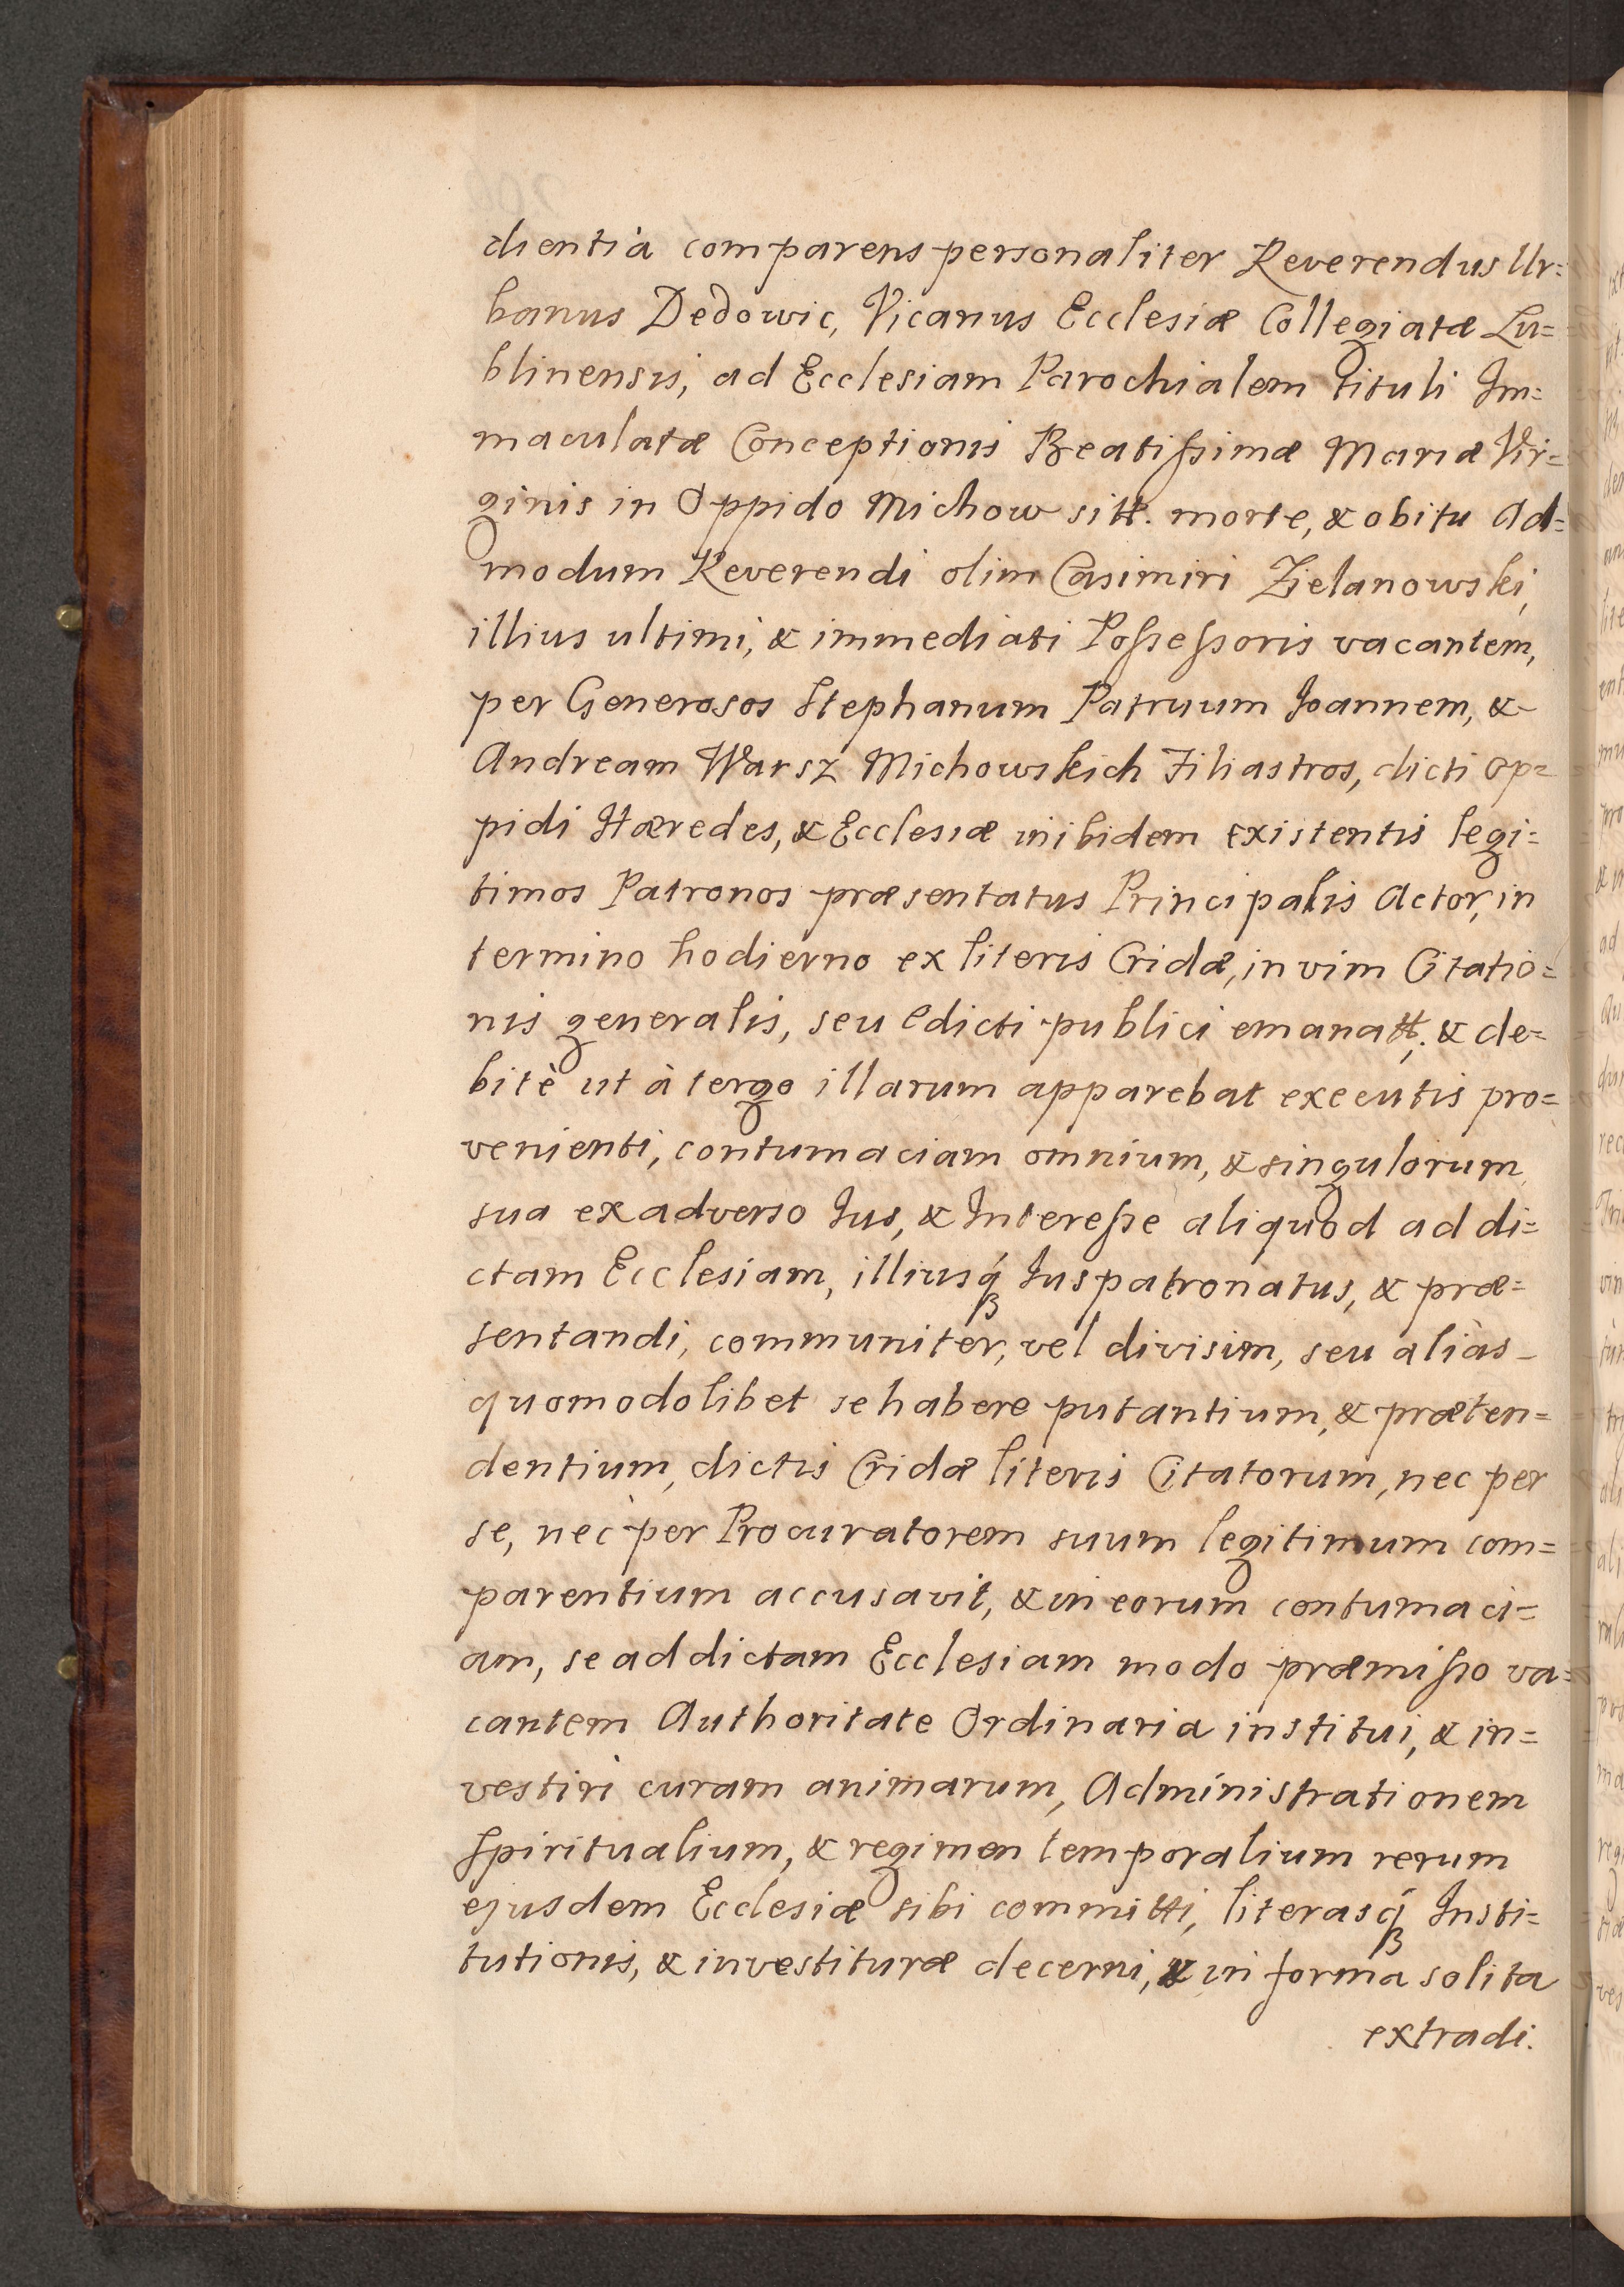 dientia comparens personaliter Reverendus Ur=
banus Dedowic, Vicarius Ecclesiæ Collegiatæ Lu=
blinensis, ad Ecclesiam Parochialem tituli Im=
maculatæ Conceptionis Beatissimæ Mariæ Vir=
ginis in Oppido Michow sitt. morte, & obitu Ad=
modum Reverendi olim Casimiri Zielanowski,
illius ultimi, & immediati Possessoris vacantem,
per Generosos Stephanum Patruum Joannem, &
Andream Warsz Michowskich Filiastros, dicti Op=
pidi Hæredes, & Ecclesiæ inibidem existentis legi=
timos Patronos præsentatus Principalis Actor, in
termino hodierno ex literis Cridæ, in vim Citatio=
nis generalis, seu edicti publici emanatt. & de=
bitè ut à tergo illarum apparebat executis pro=
venienti, contumaciam omnium, & singulorum
sua exadverso Jus, & Interesse aliquod ad di=
ctam Ecclesiam, illiusq́ Juspatronatus, & præ=
sentandi, communiter, vel divisim, seu aliàs
quomodolibet se habere putantium, & præten=
dentium, dictis Cridæ literis Citatorum, nec per
se, nec per Procuratorem suum legitimum com=
parentium accusavit, & in eorum contumaci=
am, se ad dictam Ecclesiam modo præmisso va=
cantem Authoritate Ordinaria institui, & in=
vestiri curam animarum, Administrationem
Spiritualium, & regimen temporalium rerum
ejusdem Ecclesiæ sibi committi, literasq́ Insti=
tutionis, & investituræ decerni, & in forma solita
extradi.